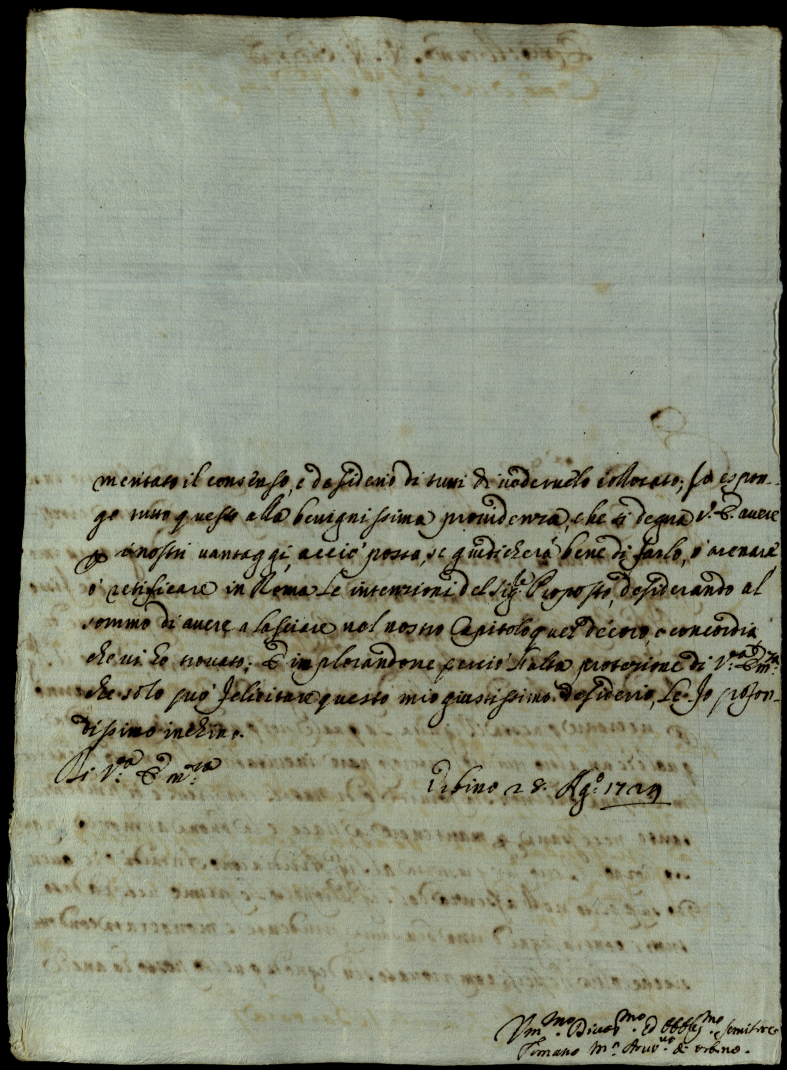 mentato il consenso, e desiderio di tutti di vedervelo collocato; Io espon-
go tutto questo alla benignissima providenza, che si degna V. E. avere
p i nostri vantaggi, acciò possa, se giudicherà bene di farlo, ò arenare
ò retificare in Roma le intenzioni del Sig.r Proposto, desiderando al
sommo di avere a lasciare nel nostro Capitolo quel decoro, e concordia
che vi hò trovato; Ed implorandone perciò l'alta protezione di V.ra Em.za
che solo può felicitare questo mio giustissimo desiderio, Le fo profon-
dissimo inchino.
Di V.ra Em.za
Urbino 28. Ag.o 1724
Um.mo Divot.mo ed Obblig.mo Servitore
Tomaso M.a Arciv.vo di Urbino.